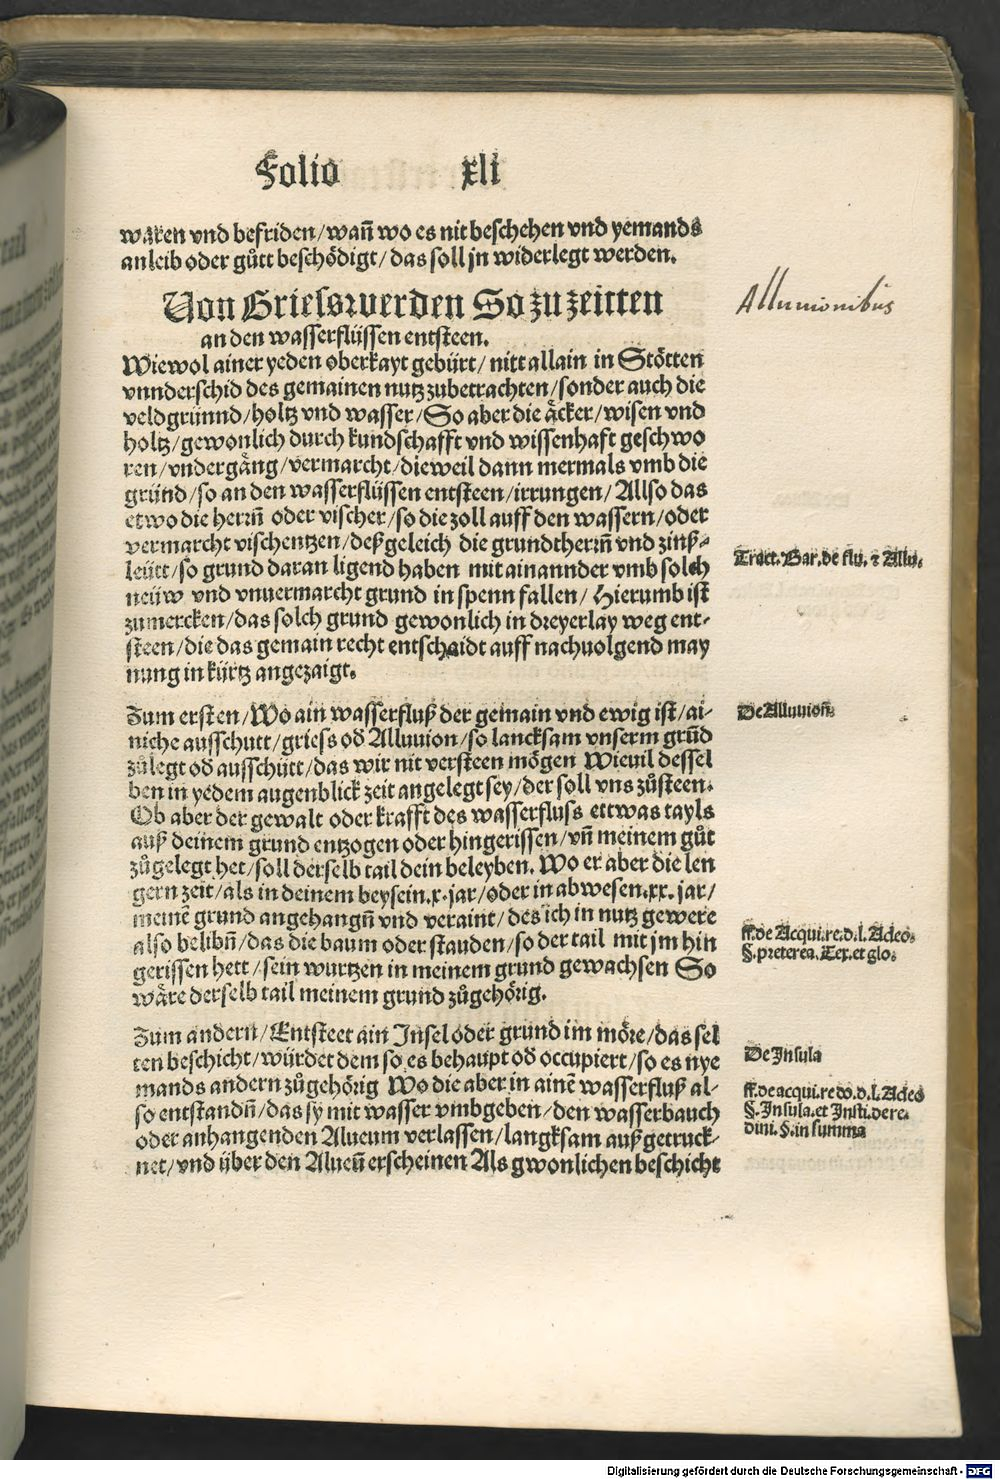 Folio xli
waren vnd befriden/wañ wo es nit beschehen vnd yemands
an leib oder gůtt beschödigt/das soll jn widerlegt werden.
Von Griesswerden So zu zeitten
an den wasserflüssen entsteen.
Allunionibus
Wiewol ainer yeden oberkayt gebürt/nitt allain in Stötten
vnnderschid des gemainen nutz zubetrachten/sonder auch die
veldgrünnd/holtz vnd wasser/So aber die äcker/wisen vnd
holtz/gewonlich durch kundschafft vnd wissenhaft geschwo
ren/vndergäng/vermarcht/dieweil dann mermals vmb die
gründ/so an den wasserflüssen entsteen/irrungen/Allso das
etwo die herrñ oder vischer/so die zoll auff den wassern/oder
vermarcht vischentzen/deßgeleich die grundtherrñ vnd zinß-
leütt/so grund daran ligend haben mit ainannder vmb solch
neüw vnd vnuermarcht grund in spenn fallen/Hierumb ist
zumercken/das solch grund gewonlich in dreyerlay weg ent-
steen/die das gemain recht entschaidt auff nachuolgend may
nung in kürtz angezaigt.
Tract. Bar. de flu. ⁊ Allu.
Zum ersten/Wo ain wasserfluß der gemain vnd ewig ist/ai-
niche ausschutt/griess oď Alluuion/so lancksam vnserm grũd
zůlegt oď ausschütt/das wir nit versteen mögen Wieuil dessel
ben in yedem augenblick zeit angelegt sey/der soll vns zůsteen.
Ob aber der gewalt oder krafft des wasserfluss ettwas tayls
auß deinem grund entzogen oder hingerissen/vñ meinem gůt
zůgelegt het/soll derselb tail dein beleyben. Wo er aber die len
gern zeit/als in deinem beysein .x. jar/oder in abwesen .xx. jar/
meinē grund angehangñ vnd veraint/des ich in nutz gewere
also belibñ/das die baum oder stauden/so der tail mit jm hin
gerissen hett/sein wurtzen in meinem grund gewachsen So
wäre derselb tail meinem grund zůgehörig.
De Alluuioñ.
ff. de Acqui. re. d. l. Adeo.
§. preterea. Tex. et glo.
Zum andern/Entsteet ain Insel oder grund im möre/das sel
ten beschicht/würdet dem so es behaupt oď occupiert/so es nye
mands andern zůgehörig Wo die aber in ainē wasserfluß al-
so entstandñ/das sy mit wasser vmbgeben/den wasserbauch
oder anhangenden Alueum verlassen/langksam außgetruck-
net/vnd über den Alueũ erscheinen Als gwonlichen beschicht
De Insula
ff. de acqui. re do. d. l. Adeo
§. Insula. et Insti. de re.
diui. §. in summa
Digitalisierung gefördert durch die Deutsche Forschungsgemeinschaft - DFG